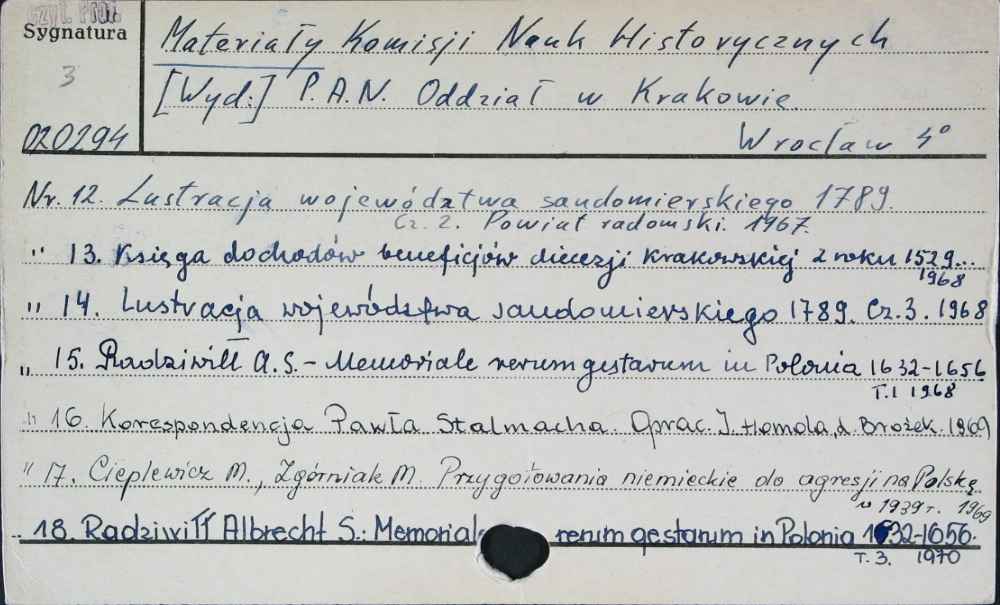 Czyt. Prof.
Sygnatura
3
020294
Materiały Komisji Nauk Historycznych
[Wyd:] P.A.N. Oddział w Krakowie
Wrocław 4°
Nr. 12. Lustracja województwa sandomierskiego 1789.
Cz. 2. Powiat radomski. 1967.
" 13. Księga dochodów beneficjów diecezji krakowskiej z roku 1529...
1968
" 14. Lustracja województwa sandomierskiego 1789. Cz. 3. 1968
" 15. Radziwiłł A.S. - Memoriale rerum gestarum in Polonia 1632-1656
T.1 1968
" 16. Korespondencja Pawła Stalmacha. Oprac. J. Homola, L. Brożek. 1969
" 17. Cieplewicz M., Zgórniak M. Przygotowania niemieckie do agresji na Polskę
w 1939 r. 1969
" 18. Radziwiłł Albrecht S.: Memoriale rerum gestarum in Polonia 1632-1656.
T. 3. 1970